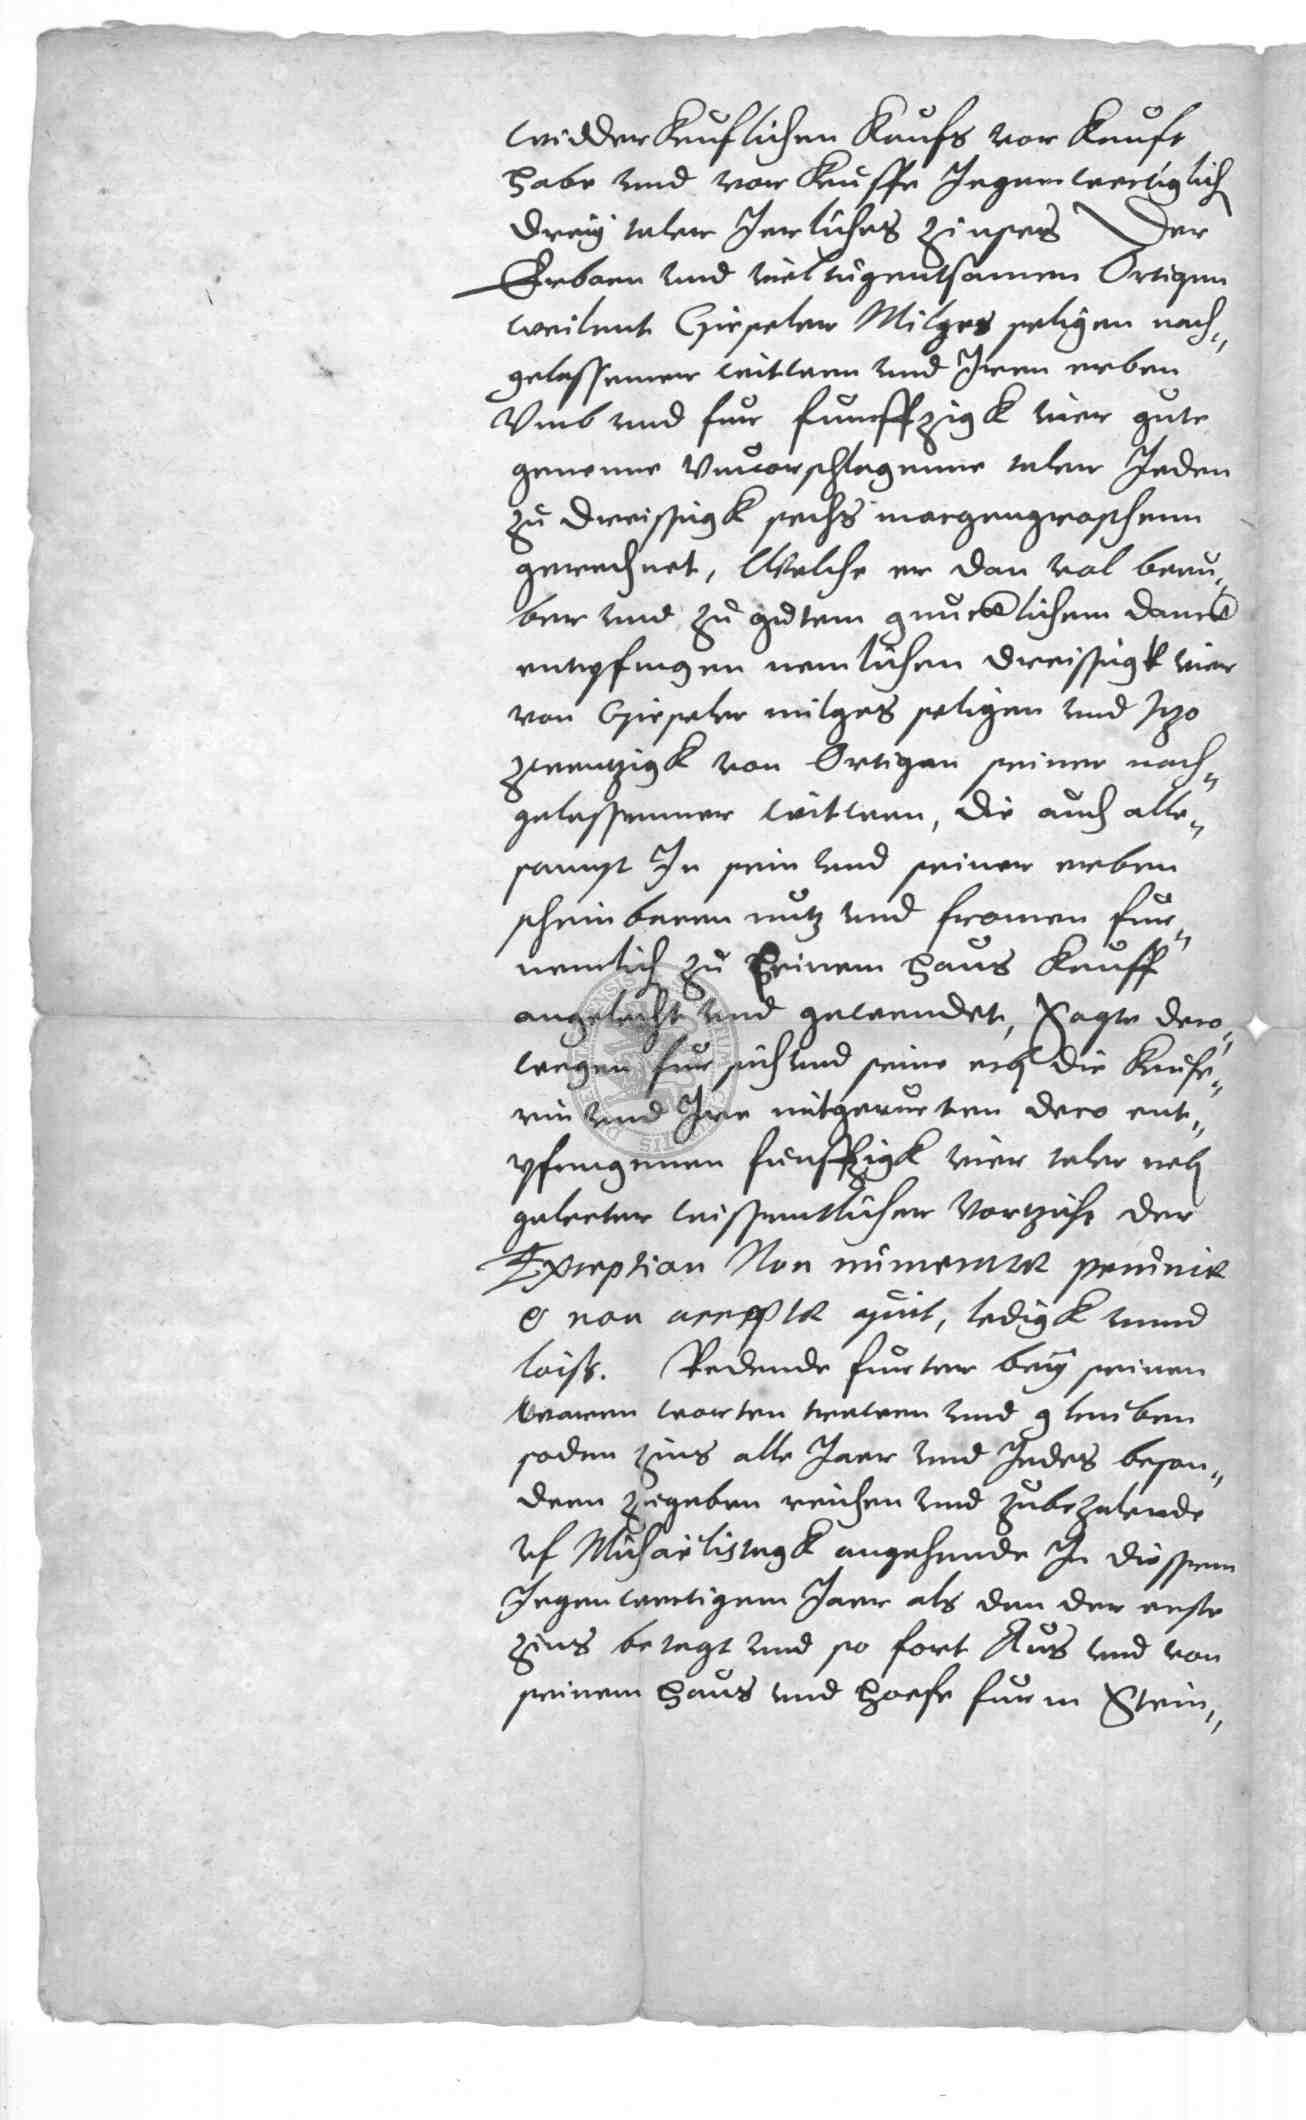 widderkeuflichen Kaufs vor kauft
habe und vor keuffe Jegenwertiglich
dreij taler Jerliches Zinses Der
Erbarn und vieltugentsamen Ortigen
weilent Ciriseler Milges seligen nach„
gelassener witwen und Jren erben
Vmb und fur funffzigk vier gute
geneme Vnvorschlagenne taler Jeden
zu dreissigk sechs margengroschenn
gerechnet, Welche er dan vol beru„
ber und zu gutem gnucklichem danck
entpfangen nemlichen dreissigk vier
von Ciriseler milges seligen und Jtzo
zwentzigk von Ortigen seiner nach„
gelassenner witwen, die auch alle„
sampt Jn sein und seiner erben
scheinbaren nutz und fromen fur„
nemlich zu seinem haus kauff
angelecht und gewendet, Sagte dero„
wegen fur sich und seine erb die keufe„
rin und Jre mitgerurten dero ent„
pfangenen funffzigk vier taler neb
geleter wissentlicher Vortzicht der
Exception Non numeratae pecuniae
& non acceptae quit, ledigk unnd
loiss. Redende furter beij seinen
waren worten trewen und glauben
soden zins alle Jaer und Jedes beson„
dern zugeben reichen und zubezalende
vf Michaelistagk angehende Jn diessem
Jegenwertigem Jaer als dan der erste
zins betagt und so fort Aus und von
seinem haus und hoefe furm Stein„